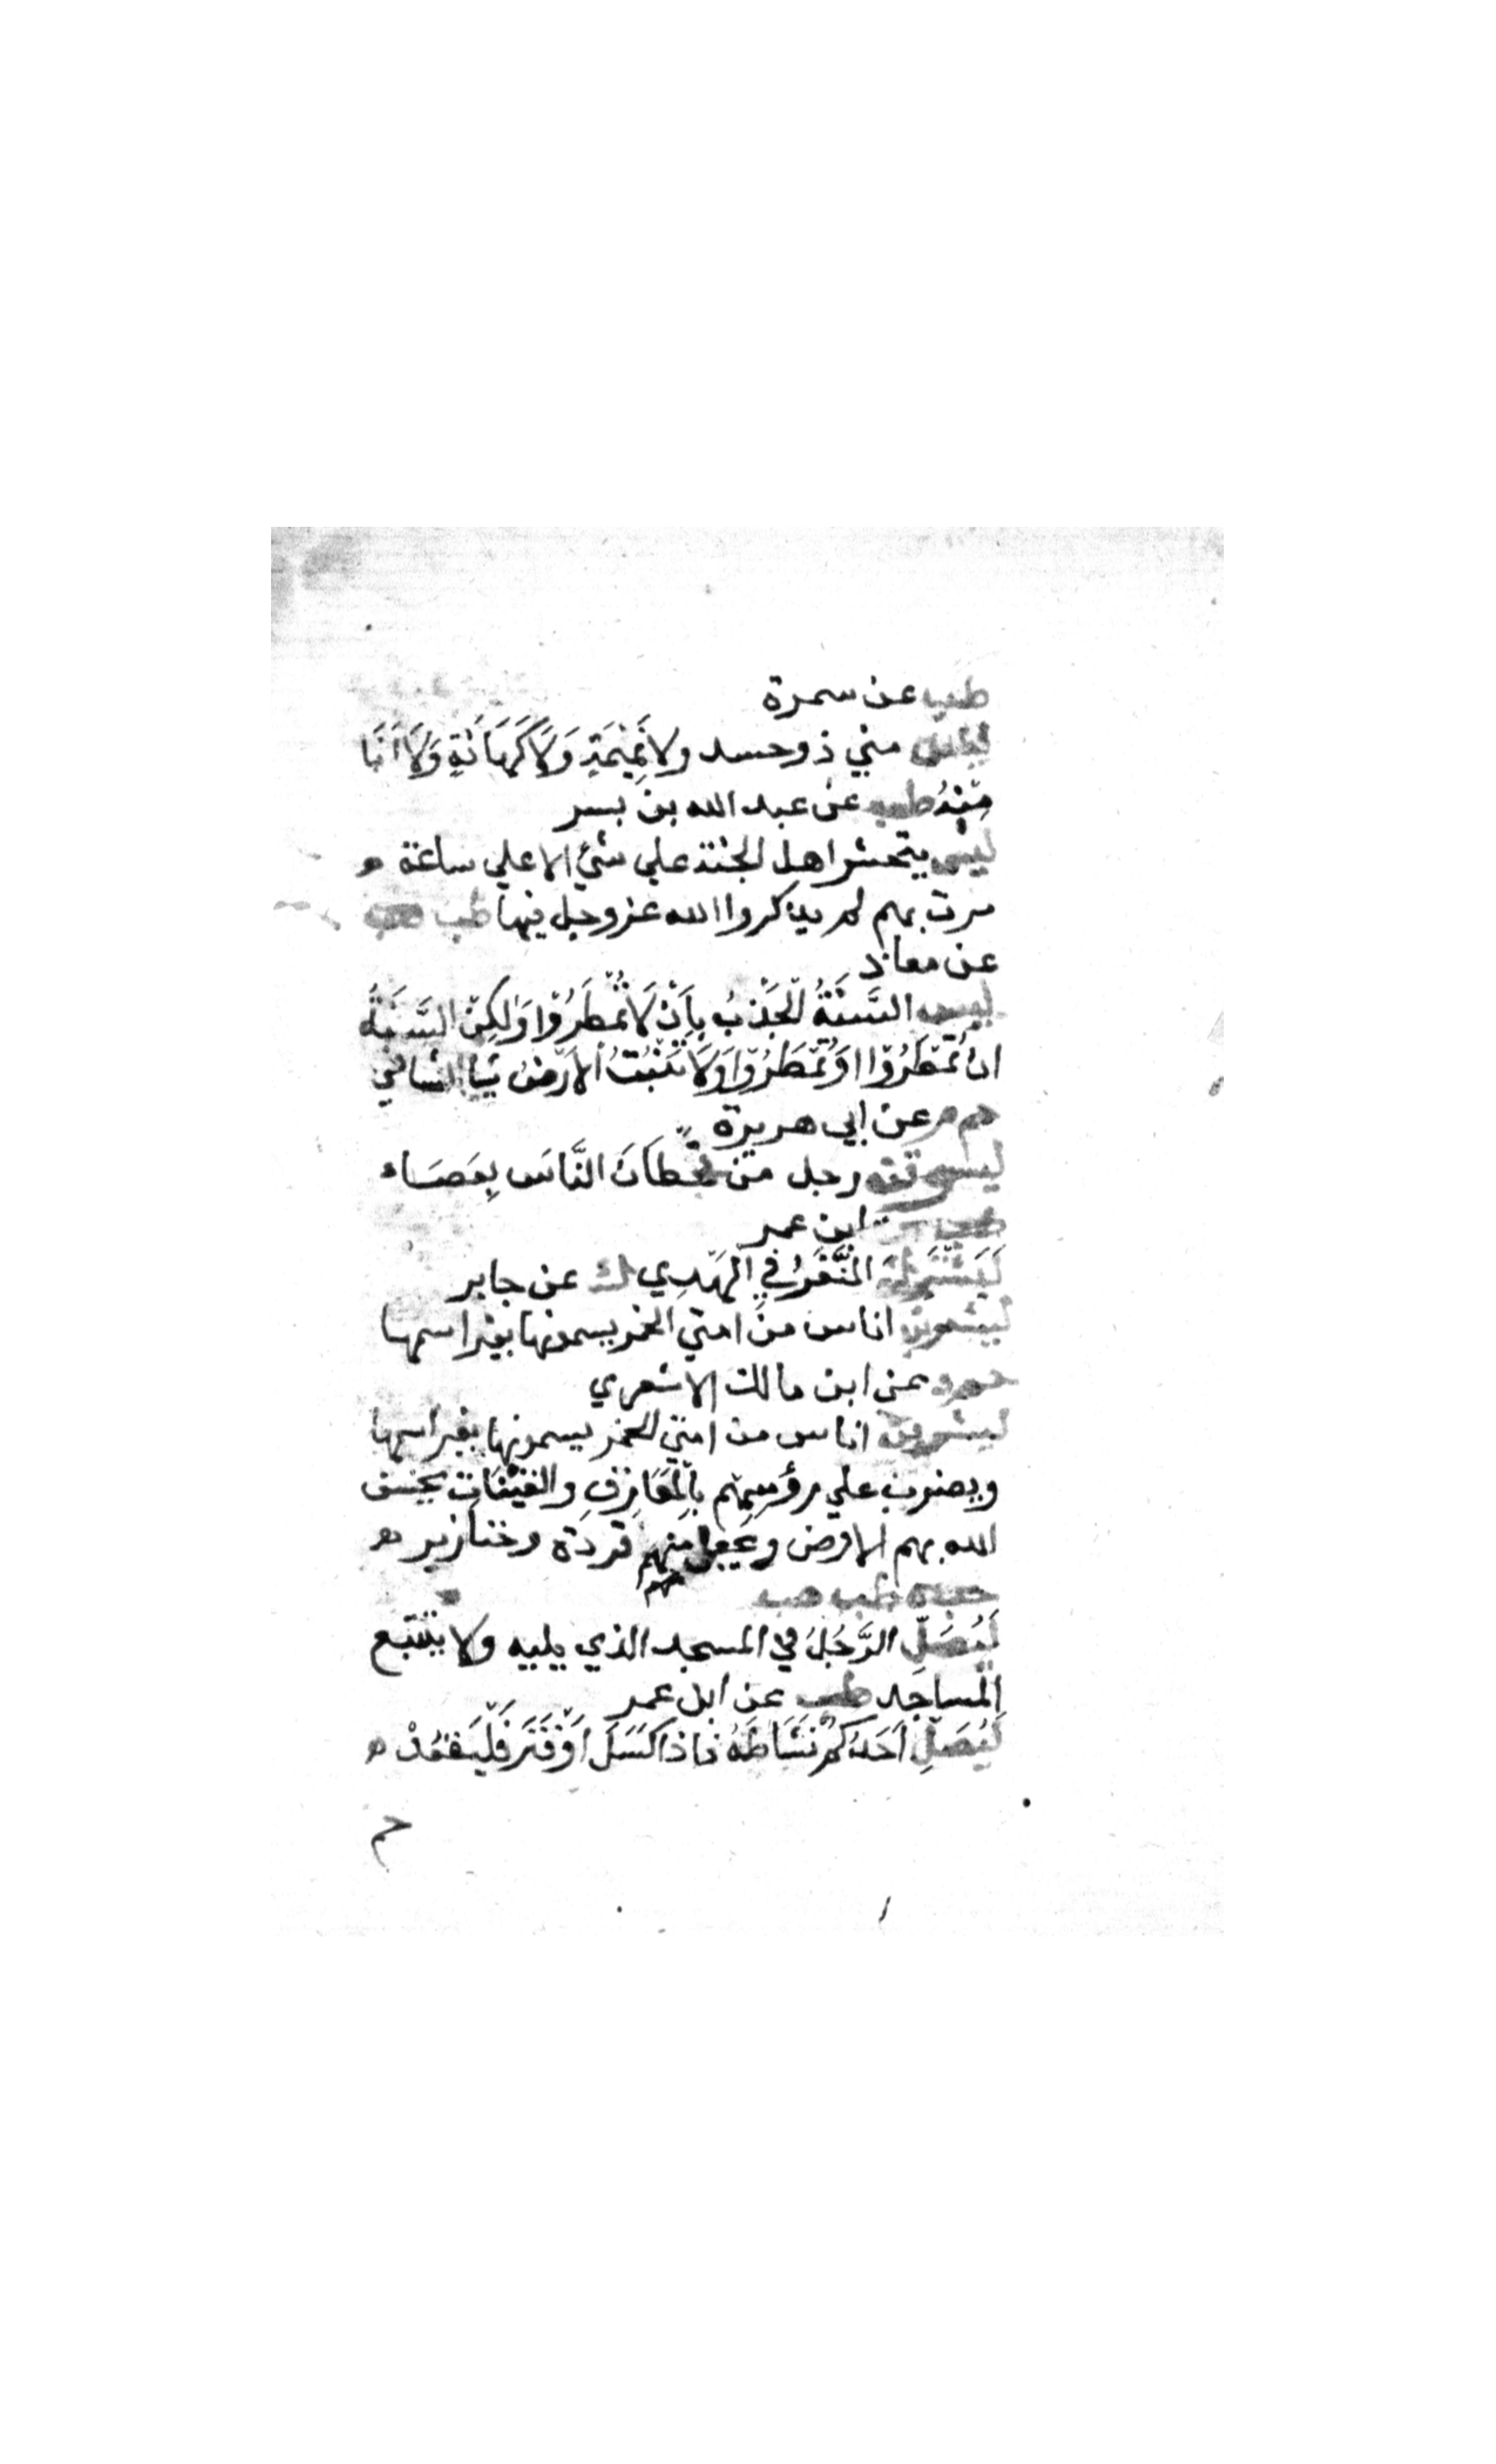 طب عن سمرة
ليس مني ذو حسد ولا نَمِيْمَةٍ وَلَا كَهَانَةٍ وَلَا اَنَا
مِنْهُ طب عن عبد الله بن بسر
ليس يتحسر اهل الجنة علي شئ الا علي ساعة ه
مرت بهم لم يذكروا الله عز وجل فيها طب هب
عن معاذ
ليس السَّنَةُ الْجَدْبُ بِاَنْ لَا تُمْطَرُوْا وَلٰكِنْ السَّنَةُ
انْ تُمْطَرُوْا وَتُمْطَرُوْا وَلَا تَنْبُتُ الْاَرْضُ شيا الشافي
حم م عن ابي هريرة
ليسوقن رجل من قحطان النَّاسَ بِعَصَاء
طب ابن عمر
لَيَشْتَرِكَ النَّفَرُ فِي الْهَدِي ك عن جابر
ليشربن اناس من امتي الخمر يسمونها بغير اسمها
حم د عن ابن مالك الاشعري
ليشربن اناس من امتي الخمر يسمونها بغير اسمها
ويضرب علي رؤسِهِم بِالْمَعَازِفِ والقينَاتِ يخسف
الله بهم الارض ويجعل منهم قردة وخنازير ه
طب هب
لَيُصَلِّ الرَّجُلُ في المسجد الذي يليه ولا يتتبع
المساجد طب عن ابن عمر
لَيُصَلِّ اَحَدُكُمْ نَشَاطَهُ فاذا كَسَلَ اَوْ فَتَرَ فَلْيَقْعُدْ ه
حم